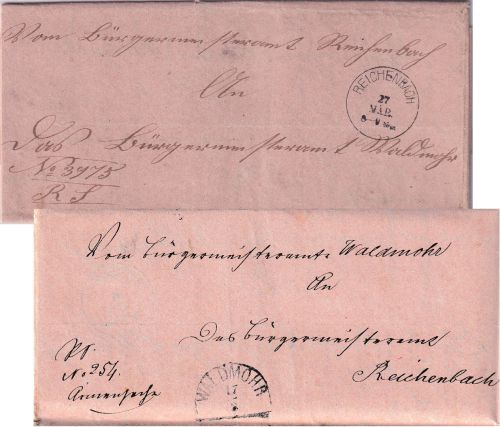 Vom Bürgermeisteramt Reichenbach
An
Das Bürgermeisteramt Waldmohr
No 3975
R S
REICHENBACH
27
MÄR.
8-9
Vom Bürgermeisteramte Waldmohr
An
Das Bürgermeisteramt
Reichenbach
No 254.
Armensache
WALDMOHR
17